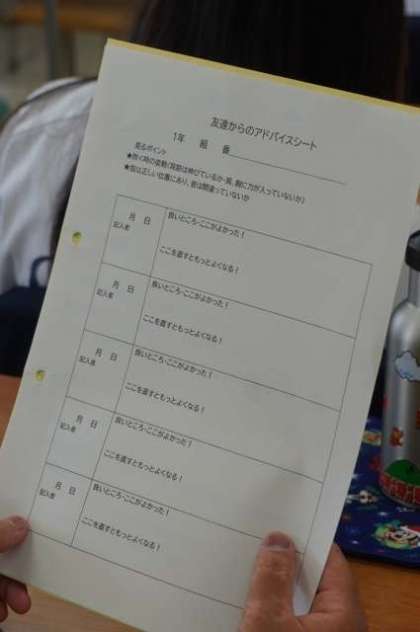 友達からのアドバイスシート
1年　組　番
見るポイント
★吹く時の姿勢(背筋は伸びているか・肩、腕に力が入っていないか)
★指は正しい位置にあり、音は間違っていないか
月　日
記入者
良いところ・ここがよかった！
ここを直すともっとよくなる！
月　日
記入者
良いところ・ここがよかった！
ここを直すともっとよくなる！
月　日
記入者
良いところ・ここがよかった！
ここを直すともっとよくなる！
月　日
記入者
良いところ・ここがよかった！
ここを直すともっとよくなる！
月　日
記入者
良いところ・ここがよかった！
ここを直すともっとよくなる！